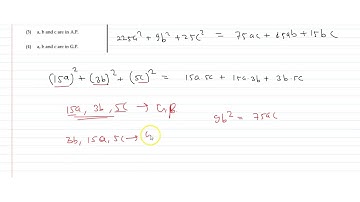 (3) a, b and c are in A.P.
(4) a, b and c are in G.P.
225a² + 9b² + 25c² = 75ac + 45ab + 15bc
(15a)² + (3b)² + (5c)² = 15a.5c + 15a.3b + 3b.5c
15a, 3b, 5c → G.P.
9b² = 75ac
3b, 15a, 5c → G